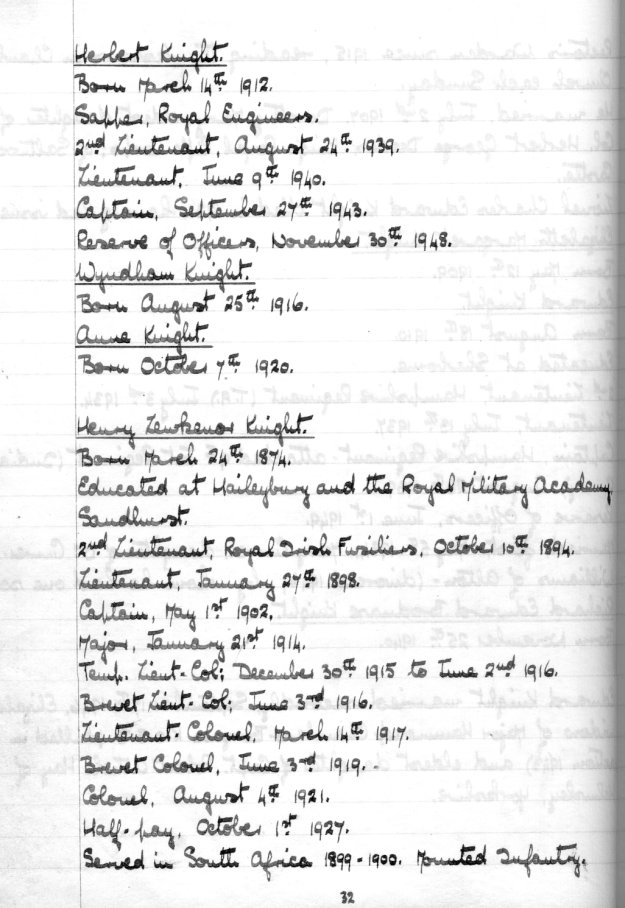 Herbert Knight.
Born March 14th 1912.
Sapper, Royal Engineers.
2nd Lieutenant, August 24th 1939.
Lieutenant, June 9th 1940.
Captain, September 27th 1943.
Reserve of Officers, November 30th 1948.
Wyndham Knight.
Born August 25th 1916.
Anne Knight.
Born October 7th 1920.
Henry Lewkenor Knight.
Born March 24th 1874.
Educated at Haileybury and the Royal Military Academy
Sandhurst.
2nd Lieutenant, Royal Irish Fusiliers, October 10th 1894.
Lieutenant, January 27th 1898.
Captain, May 1st 1902.
Major, January 21st 1914.
Temp. Lieut-Col; December 30th 1915 to June 2nd 1916.
Brevet Lieut-Col; June 3rd 1916.
Lieutenant-Colonel, March 14th 1917.
Brevet Colonel, June 3rd 1919.
Colonel, August 4th 1921.
Half-pay, October 1st 1927.
Served in South Africa 1899-1900. Mounted Infantry.
32